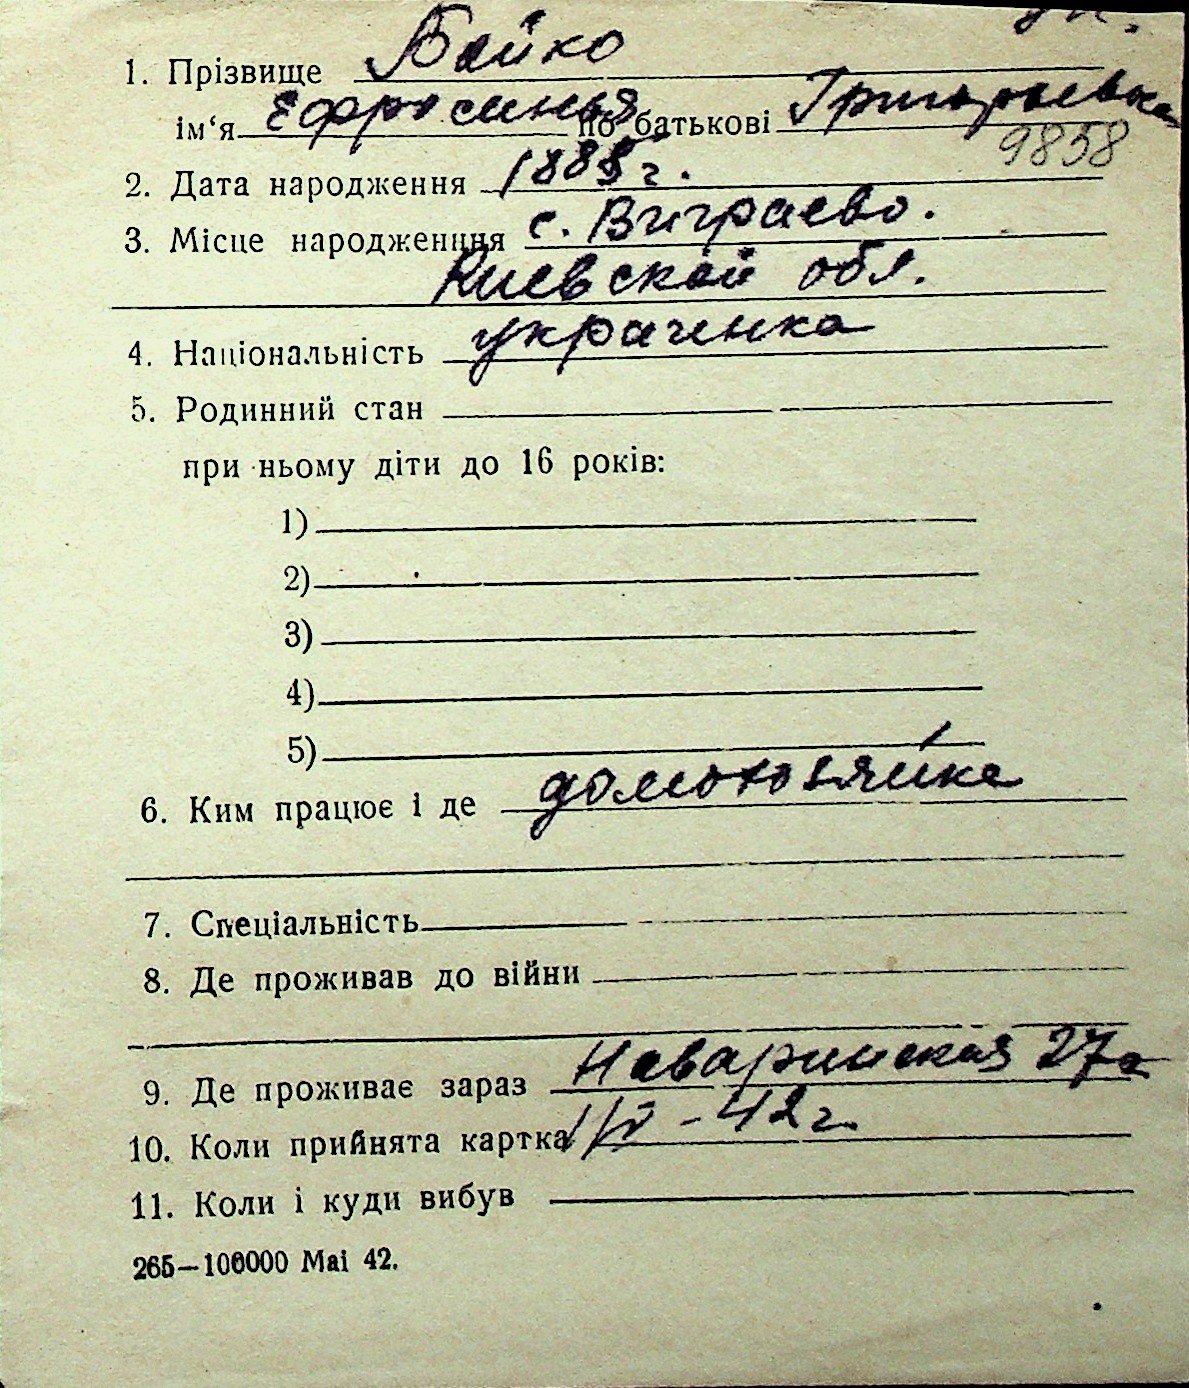 1. Прізвище Бойко
ім‘я Ефросинья по батькові Григорьевна
9858
2. Дата народження г.
3. Місце народженння с. Виграево.
Киевской обл.
4. Національність украченка
5. Родинний стан
при ньому діти до 16 років:
1)
2)
3)
4)
5)
6. Ким працює і де домохозяйка
7. Спеціальність
8. Де проживав до війни
9. Де проживає зараз Наваринская 27а
10. Коли прийнята картка - 42 г.
11. Коли і куди вибув
265—100000 Mai 42.